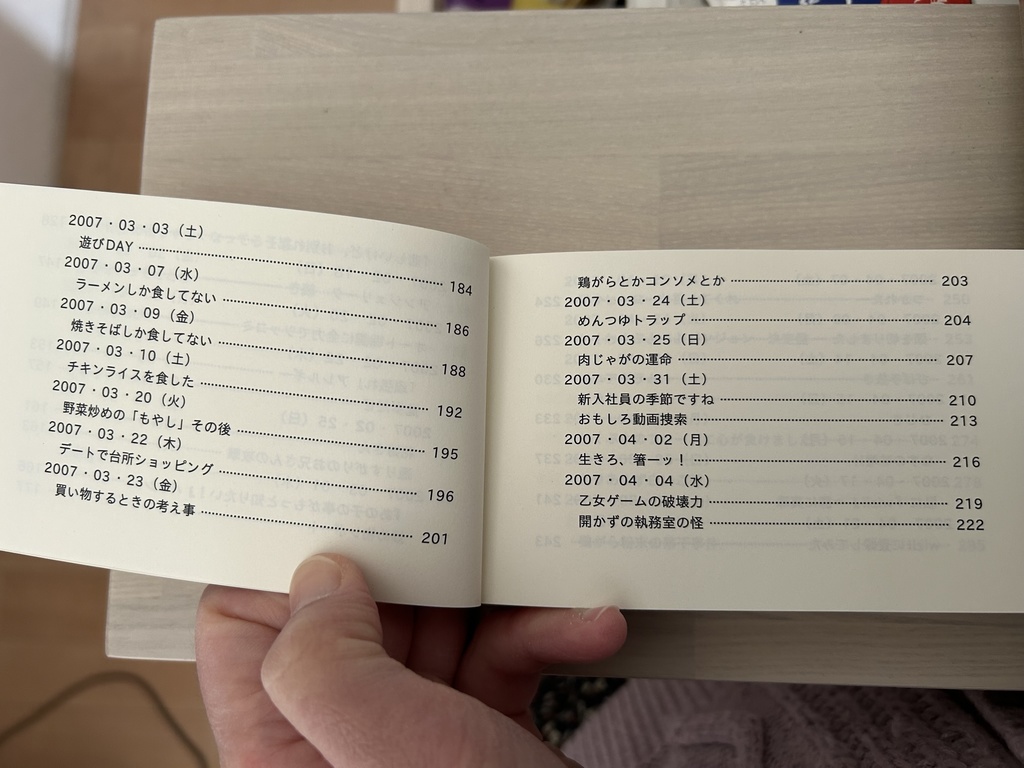 2007・03・03（土）
遊びDAY 184
2007・03・07（水）
ラーメンしか食してない 186
2007・03・09（金）
焼きそばしか食してない 188
2007・03・10（土）
チキンライスを食した 192
2007・03・20（火）
野菜炒めの「もやし」その後 195
2007・03・22（木）
デートで台所ショッピング 196
2007・03・23（金）
買い物するときの考え事 201
鶏がらとかコンソメとか 203
2007・03・24（土）
めんつゆトラップ 204
2007・03・25（日）
肉じゃがの運命 207
2007・03・31（土）
新入社員の季節ですね 210
おもしろ動画捜索 213
2007・04・02（月）
生きろ、箸一ッ！ 216
2007・04・04（水）
乙女ゲームの破壊力 219
開かずの執務室の怪 222